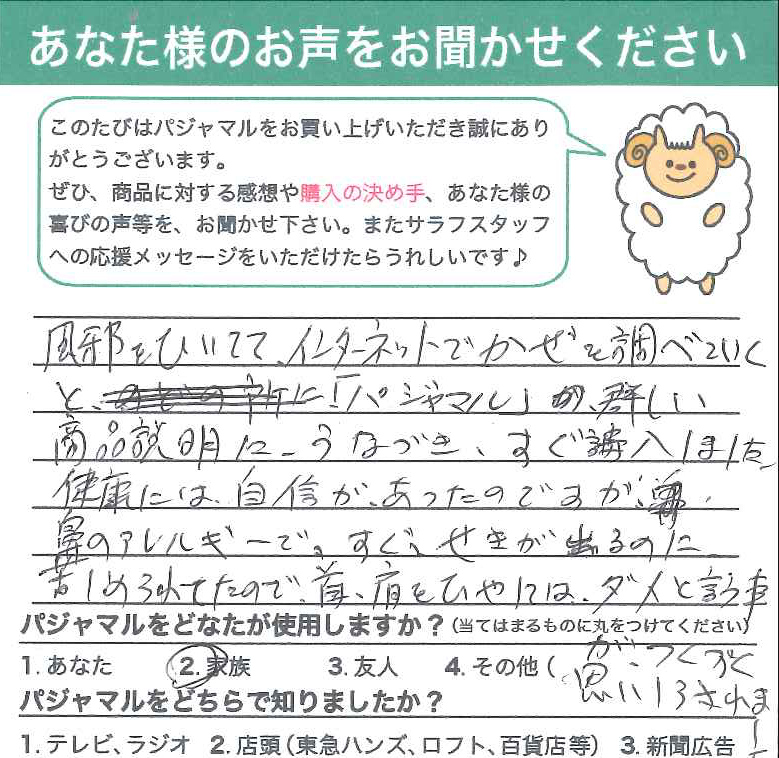 あなた様のお声をお聞かせください
このたびはパジャマルをお買い上げいただき誠にあり
がとうございます。
ぜひ、商品に対する感想や購入の決め手、あなた様の
喜びの声等を、お聞かせ下さい。またサラフスタッフ
への応援メッセージをいただけたらうれしいです♪
風邪をひいてて、インターネットでかぜを調べていく
と、「パジャマル」が、群しい
商品説明に、うなづき、すぐ購入しました
健康には、自信が、あったのですが、
鼻のアレルギーで、すぐ、せきが出るのに
苦しめられてたので、首、肩をひやしては、ダメと言う事
が、つくづく
思いしらされま
パジャマルをどなたが使用しますか？（当てはまるものに丸をつけてください）
1. あなた 2. 家族 3. 友人 4. その他（
パジャマルをどちらで知りましたか？
1. テレビ、ラジオ 2. 店頭（東急ハンズ、ロフト、百貨店等） 3. 新聞広告